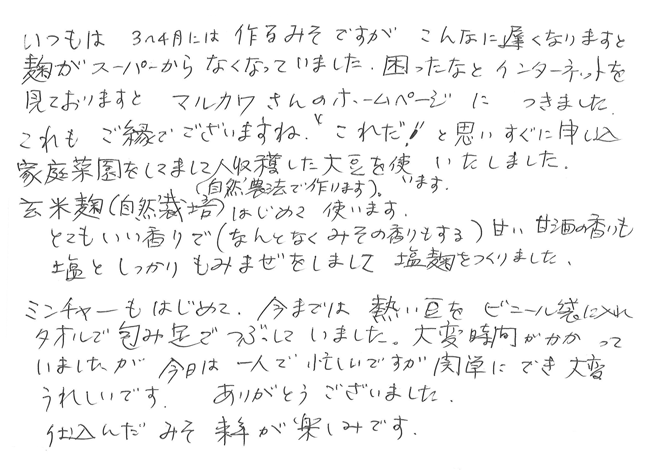 いつもは 3〜4月には 作るみそですが こんなに遅くなりますと
麹がスーパーから なくなっていました．困ったなと インターネットを
見ておりますと マルカワさんのホームページに つきました．
これも ご縁でございますね．"これだ!!"と思いすぐに申し込
家庭菜園をしてまして人収穫した大豆を使 いたしました．
(自然農法で作ります)。 います。
玄米麹(自然栽培)はじめて 使います．
とてもいい香りで(なんとなくみその香りもする)甘い 甘酒の香いも
塩と しっかり もみまぜをしまして 塩麹をつくりました．
ミンチャーも はじめて．今までは 熱い豆を ビニール袋に入れ
タオルで包み足で つぶして いました。大変時間がかかって
いましたが 今日は 一人で 忙しいですが 簡単に でき 大変
うれしいです． ありがとう ございました．
仕込んだ みそ 来年が 楽しみです．